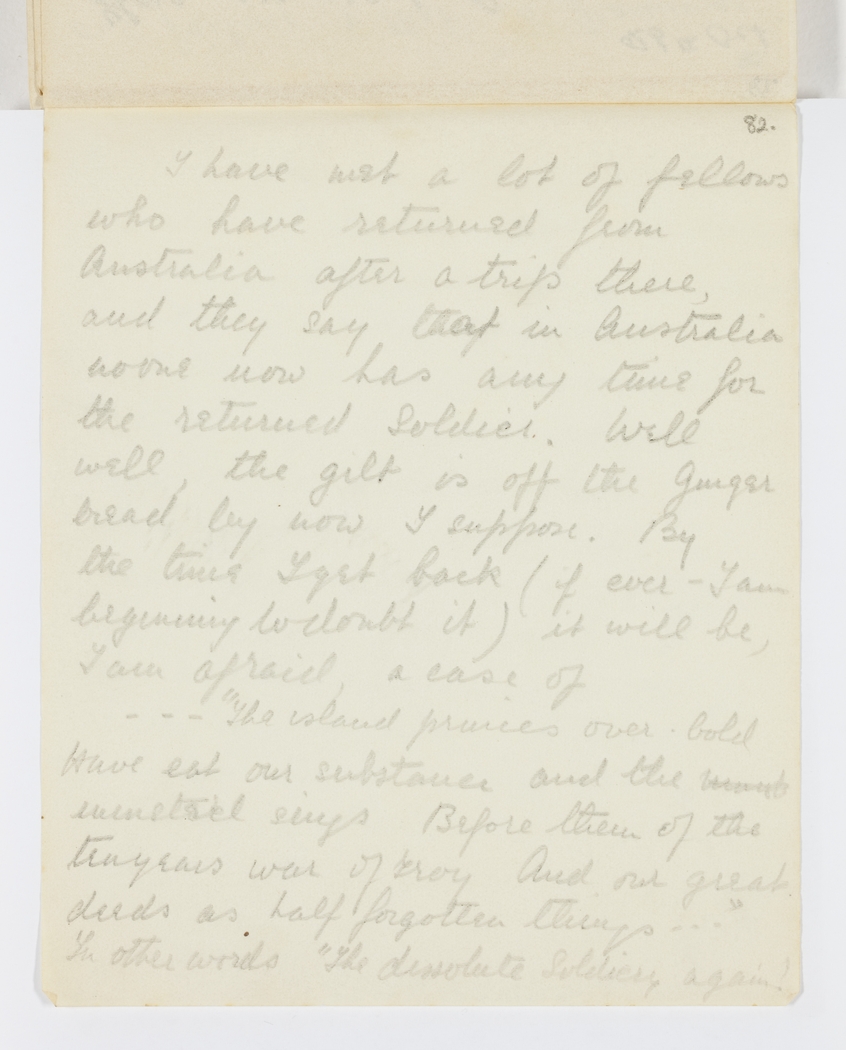 82.
I have met a lot of fellows
who have returned from
Australia after a trip there,
and they say that in Australia
no one now has any time for
the returned Soldier. Well
well, the gilt is off the Ginger
bread by now I suppose. By
the time I get back (if ever - I am
beginning to doubt it) it will be,
I am afraid, a case of
--- "The island princes over. bold
Have eat our substance and the
minstrel sings Before them of the
ten years war of Troy And our great
deeds as half forgotten things ---"
In other words "The dissolute Soldiery again!